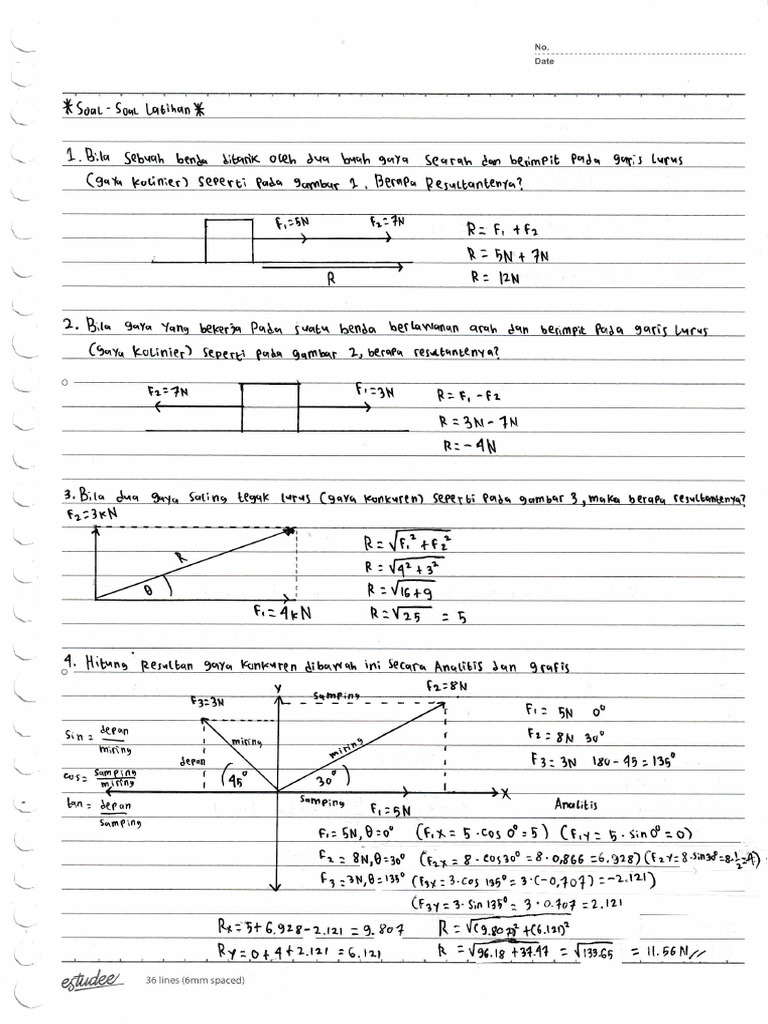 No.
Date
*Soal-Soal Latihan*
1. Bila sebuah benda ditarik oleh dua buah gaya searah dan berimpit pada garis lurus
(gaya kolinier) seperti pada gambar 1, Berapa Resultantenya?
F₁=5N F₂=7N R= F₁ + F₂
R = 5N + 7N
R R = 12N
2. Bila gaya yang bekerja pada suatu benda berlawanan arah dan berimpit pada garis lurus
(gaya kolinier) seperti pada gambar 2, berapa resultantenya?
F₂=7N F₁=3N R= F₁ - F₂
R = 3N - 7N
R = -4N
3. Bila dua gaya saling tegak lurus (gaya konkuren) seperti pada gambar 3, maka berapa resultantenya?
F₂=3kN
R R = √F₁² + F₂²
R = √4² + 3²
θ R = √16+9
F₁= 4kN R = √25 = 5
4. Hitung Resultan gaya konkuren dibawah ini secara Analitis dan grafis
Y samping F₂=8N
F₃=3N F₁ = 5N 0°
sin = depan/miring miring miring F₂ = 8N 30°
depan F₃ = 3N 180 - 45 = 135°
cos = samping/miring 45° 30° X
tan = depan/samping samping F₁=5N Analitis
F₁= 5N, θ=0° (F₁x = 5 · cos 0° = 5) (F₁y = 5 · sin 0° = 0)
F₂ = 8N, θ=30° (F₂x = 8 · cos30° = 8·0,866 = 6.928) (F₂y = 8·sin30° = 8·1/2=4)
F₃ = 3N, θ=135° (F₃x = 3·cos 135° = 3·(-0,707) = -2.121)
(F₃y = 3· sin 135° = 3 · 0.707 = 2.121
Rx = 5+6.928-2.121 = 9.807 R = √(9.807)² + (6.121)²
Ry = 0+4+2.121 = 6.121 R = √96.18 + 37.47 = √133.65 = 11.56 N//
estudee 36 lines (6mm spaced)